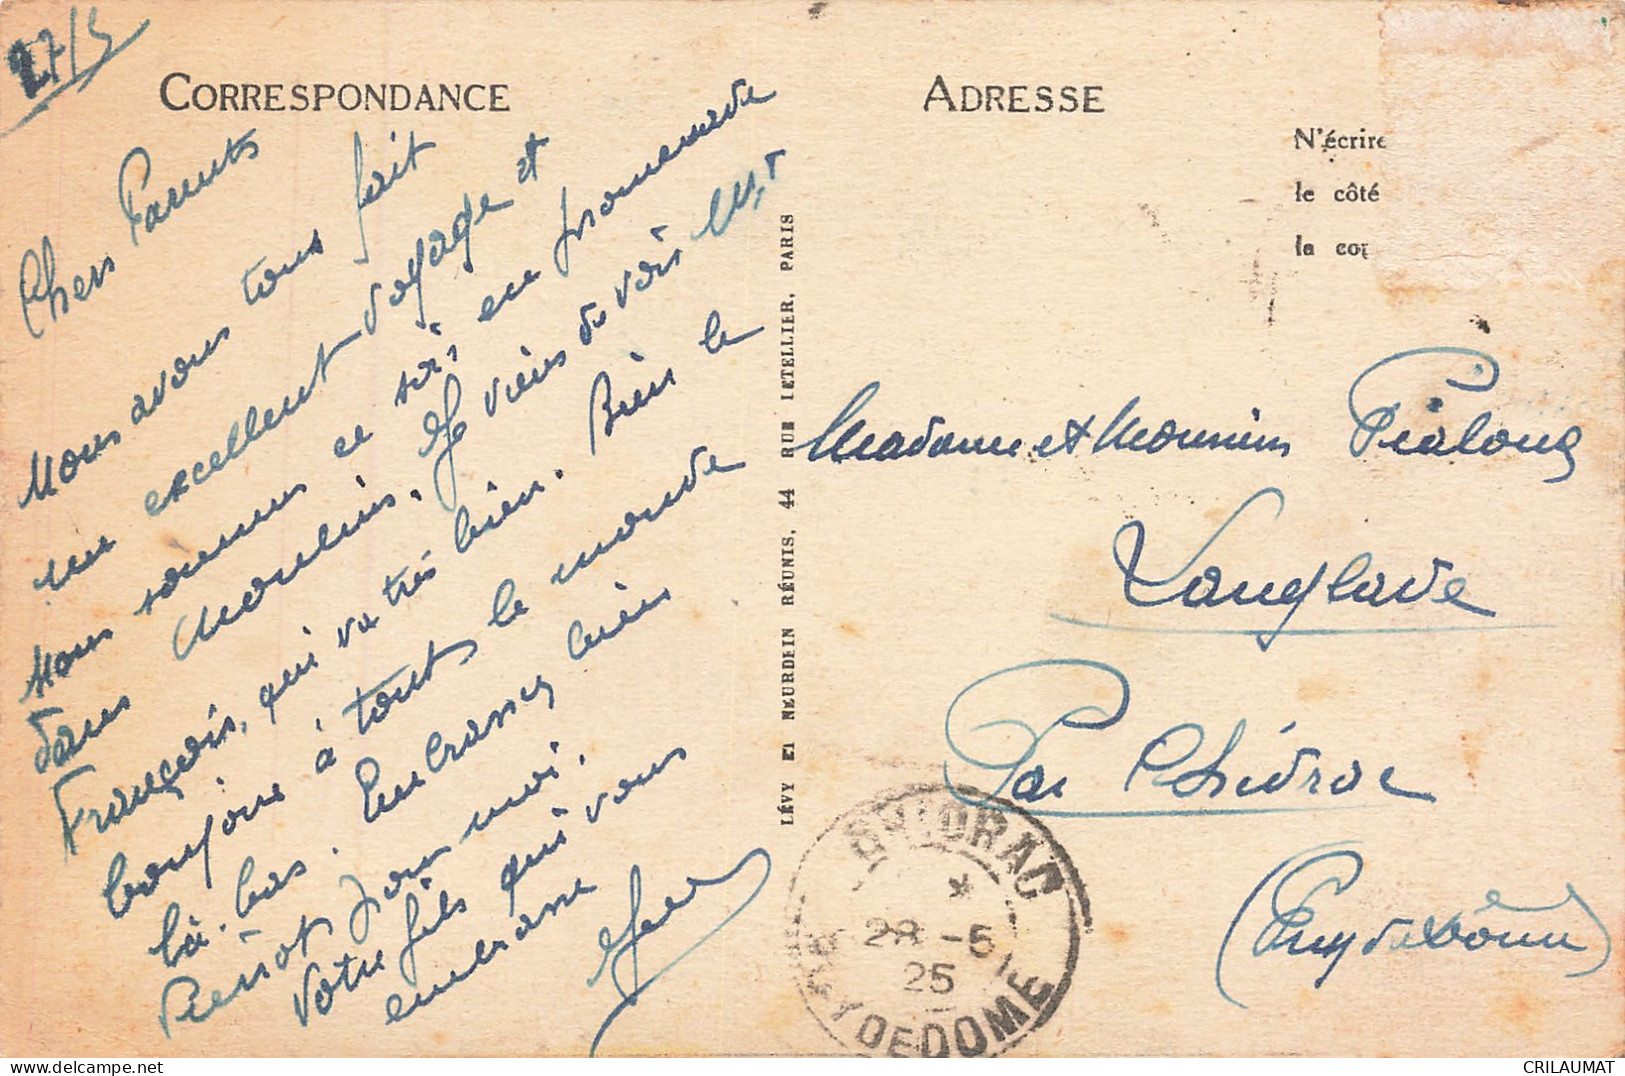 27/5
CORRESPONDANCE
Chers Parents
Nous avons tous fait
un excellent voyage et
nous sommes ce soir en promenade
dans Moulins. Je viens de voir Mr
François, qui va très bien. Bien le
bonjour à tout le monde
là-bas. Embrassez bien
Pierrot pour moi.
Votre fils qui vous
embrasse
Jean
LÉVY ET NEURDEIN RÉUNIS, 44 RUE LETELLIER, PARIS
ADRESSE
N'écrire
le côté
la cor
Madame et Monsieur Pialoux
Langlade
Par Chidrac
(Puy de Dôme)
CHIDRAC
*
28 -5
25
PUY DE DOME
CRILAUMAT